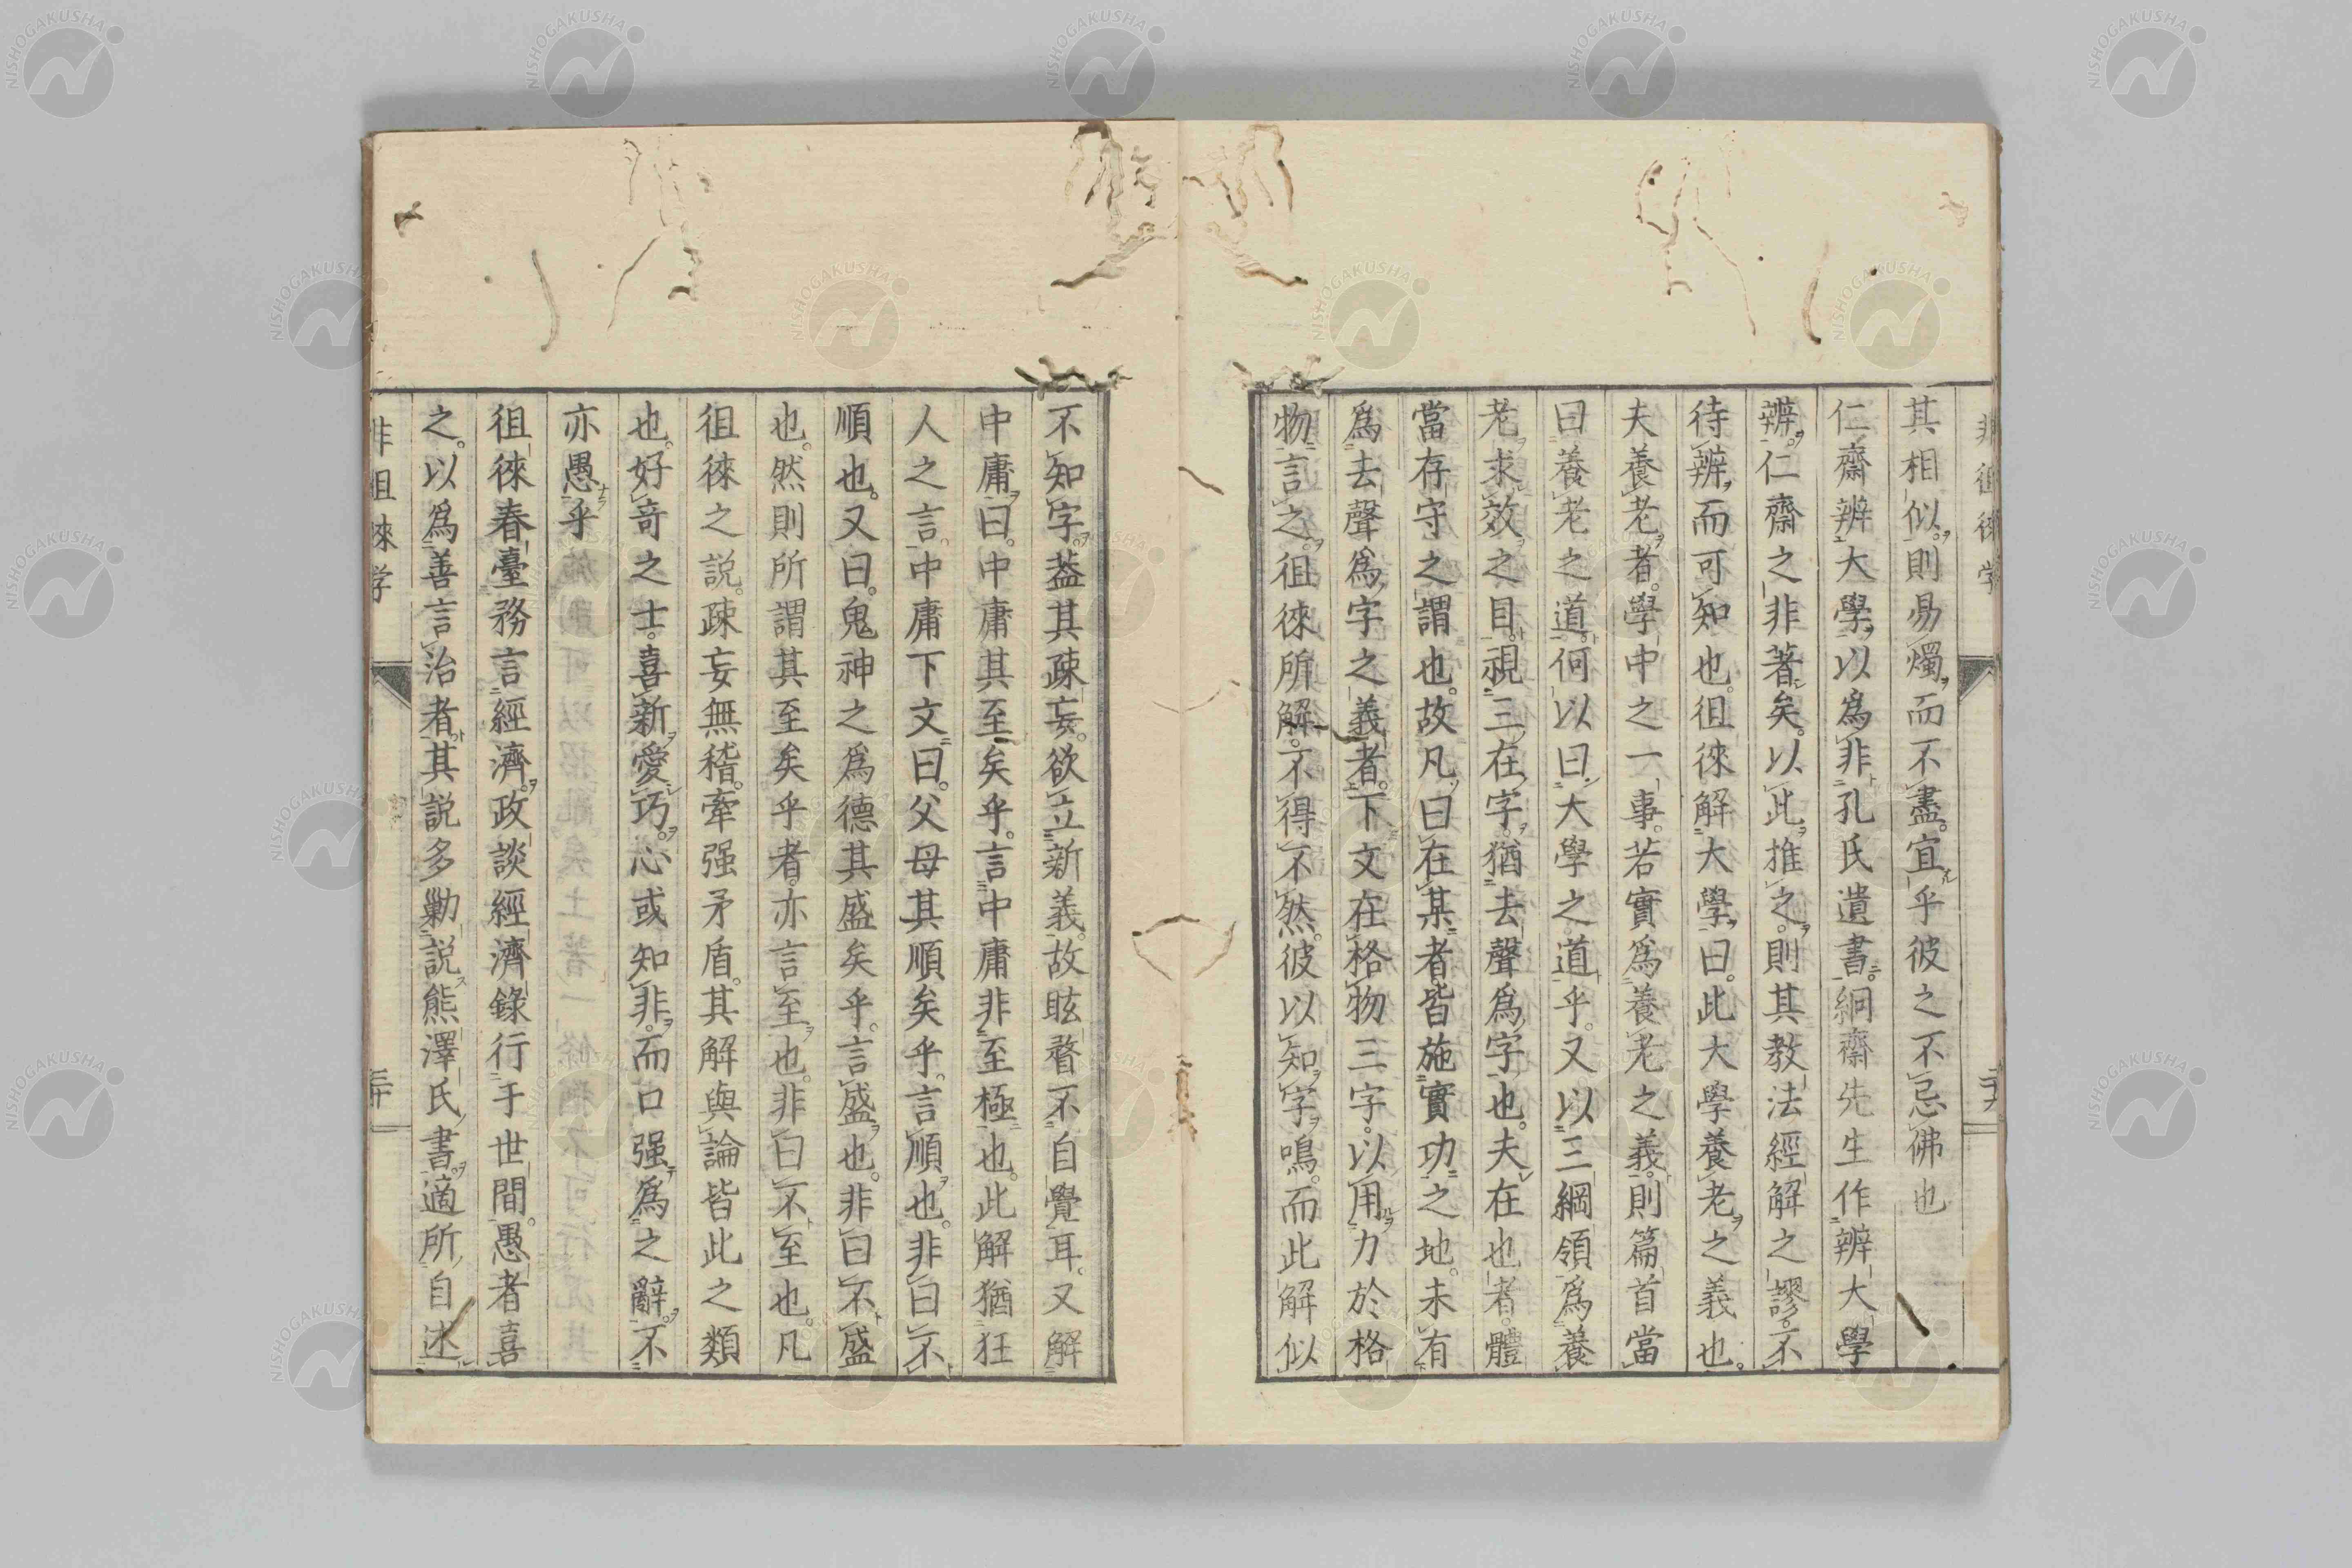 其相似則易燭而不盡宜乎彼之不忌佛也
仁齋辨大學以爲非孔氏遺書絅齋先生作辨大學
辨仁齋之非著矣以此推之則其教法經解之謬不
待辨而可知也徂徠解大學曰此大學養老之義也
夫養老者學中之一事若實爲養老之義則篇首當
曰養老之道何以曰大學之道乎又以三綱領爲養
老求效之目視三在字猶去聲爲字也夫在也者體
當存守之謂也故凡曰在某者皆施實功之地未有
爲去聲爲字之義者下文在格物三字以用力於格
物言之徂徠所解不得不然彼以知字鳴而此解似
不知字蓋其疎妄欲立新義故眩瞀不自覺耳又解
中庸曰中庸其至矣乎言中庸非至極也此解猶狂
人之言中庸下文曰父母其順矣乎言順也非曰不
順也又曰鬼神之爲德其盛矣乎言盛也非曰不盛
也然則所謂其至矣乎者亦言至也非曰不至也凡
徂徠之説疎妄無稽牽强矛盾其解與論皆此之類
也好奇之士喜新愛巧心或知非而口强爲之辭不
亦愚乎
徂徠春臺務言經濟政談經濟錄行于世間愚者喜
之以爲善言治者其説多勦説熊澤氏書適所自述
非徂徠学
NISHOGAKUSHA